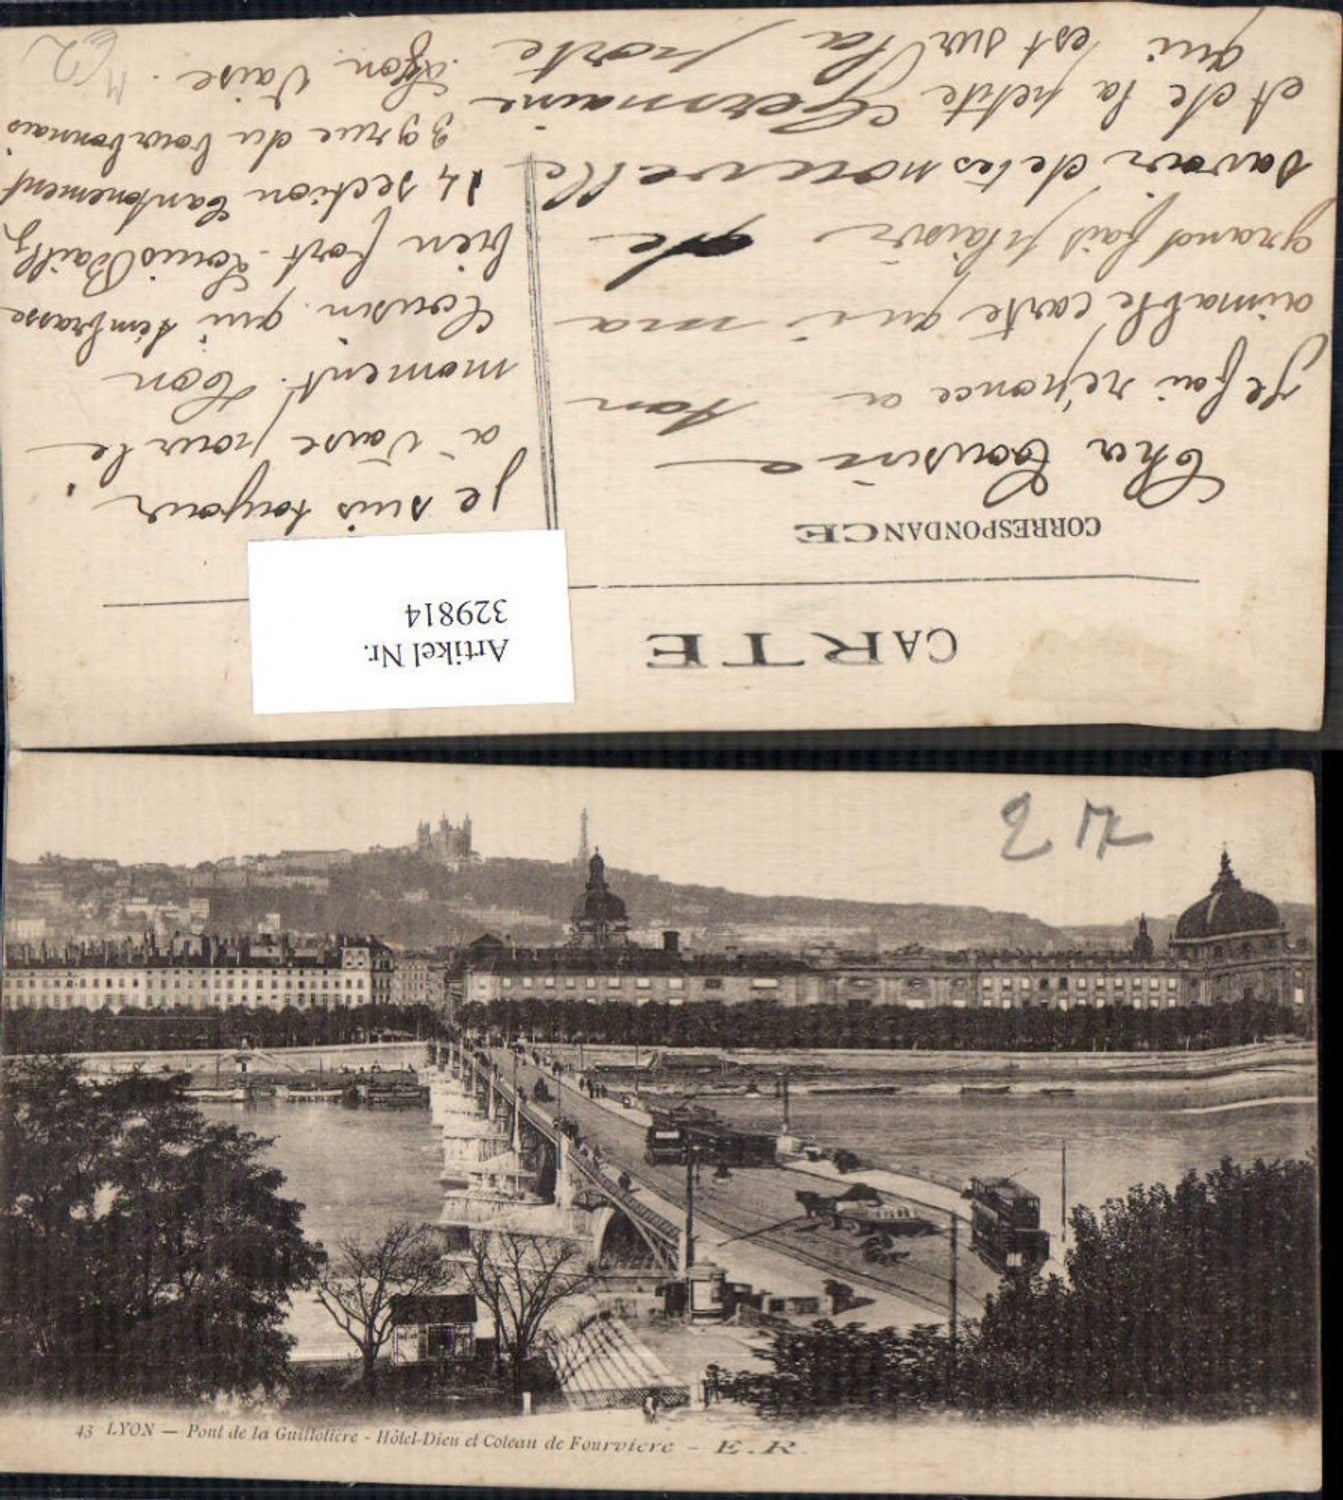 CARTE
Artikel Nr.
329814
CORRESPONDANCE
Cher Cousine
Je fai réponce a ton
aimable carte qui ma
grand fait plaisir de
savoir de tes nouvelle
et de la petite Germaine
qui est sur la porte
je suis toujour
a Vaise pour le
moment. Ton
Cousin qui t'embrasse
bien fort. Louis Bailly
14 section Cantonement
39 rue du bourbonnais
Lyon Vaise.
27
43 LYON — Pont de la Guillotière - Hôtel-Dieu et Coteau de Fourvière - E.R.